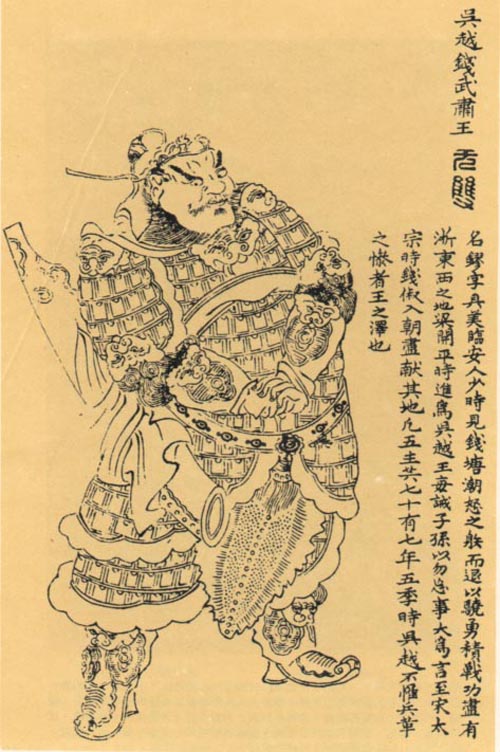 吳越錢武肅王 无雙
名鏐字具美臨安人少時見錢塘潮怒之而退以驍勇積戰功盡有
浙東西之地梁開平時進爲吳越王每誡子孫以勿忘事大爲言至宋太
宗時錢俶入朝盡献其地凡五主共七十有七年五季時吳越不罹兵革
之慘者王之澤也